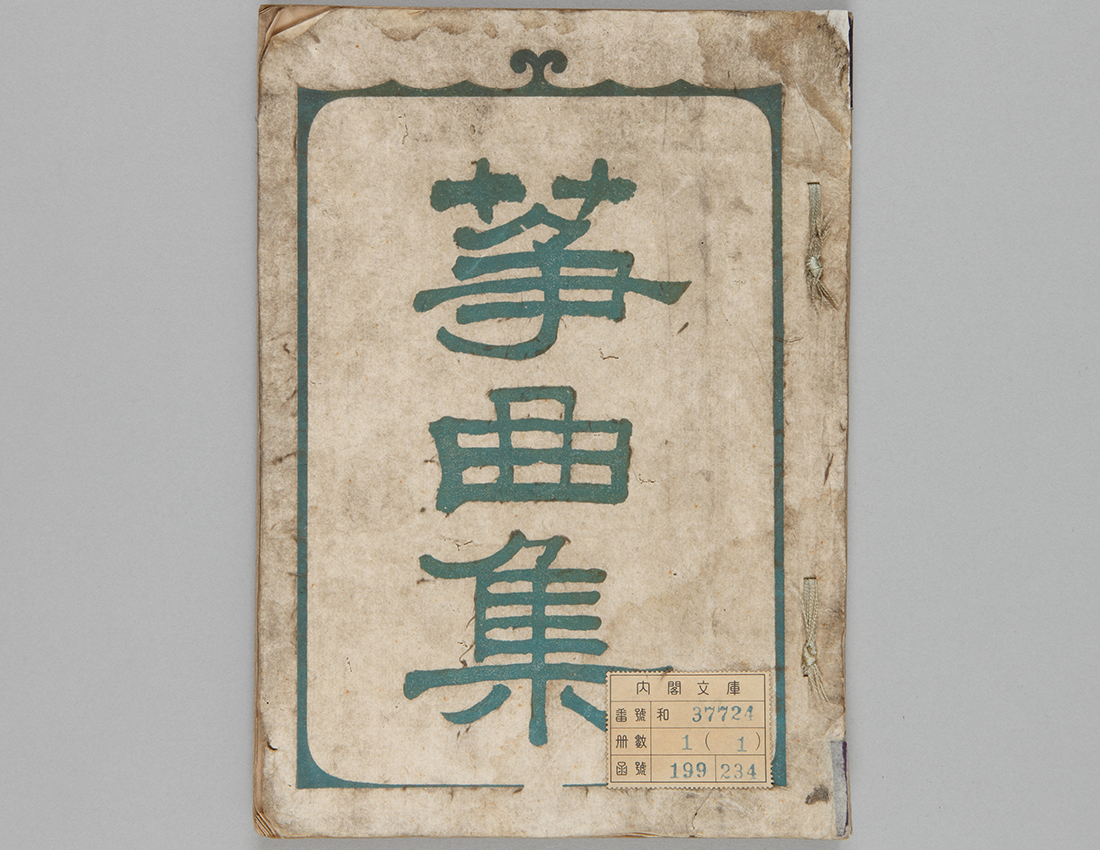 箏曲集
内閣文庫
番號 和 37724
册數 1 ( 1 )
函號 199 234